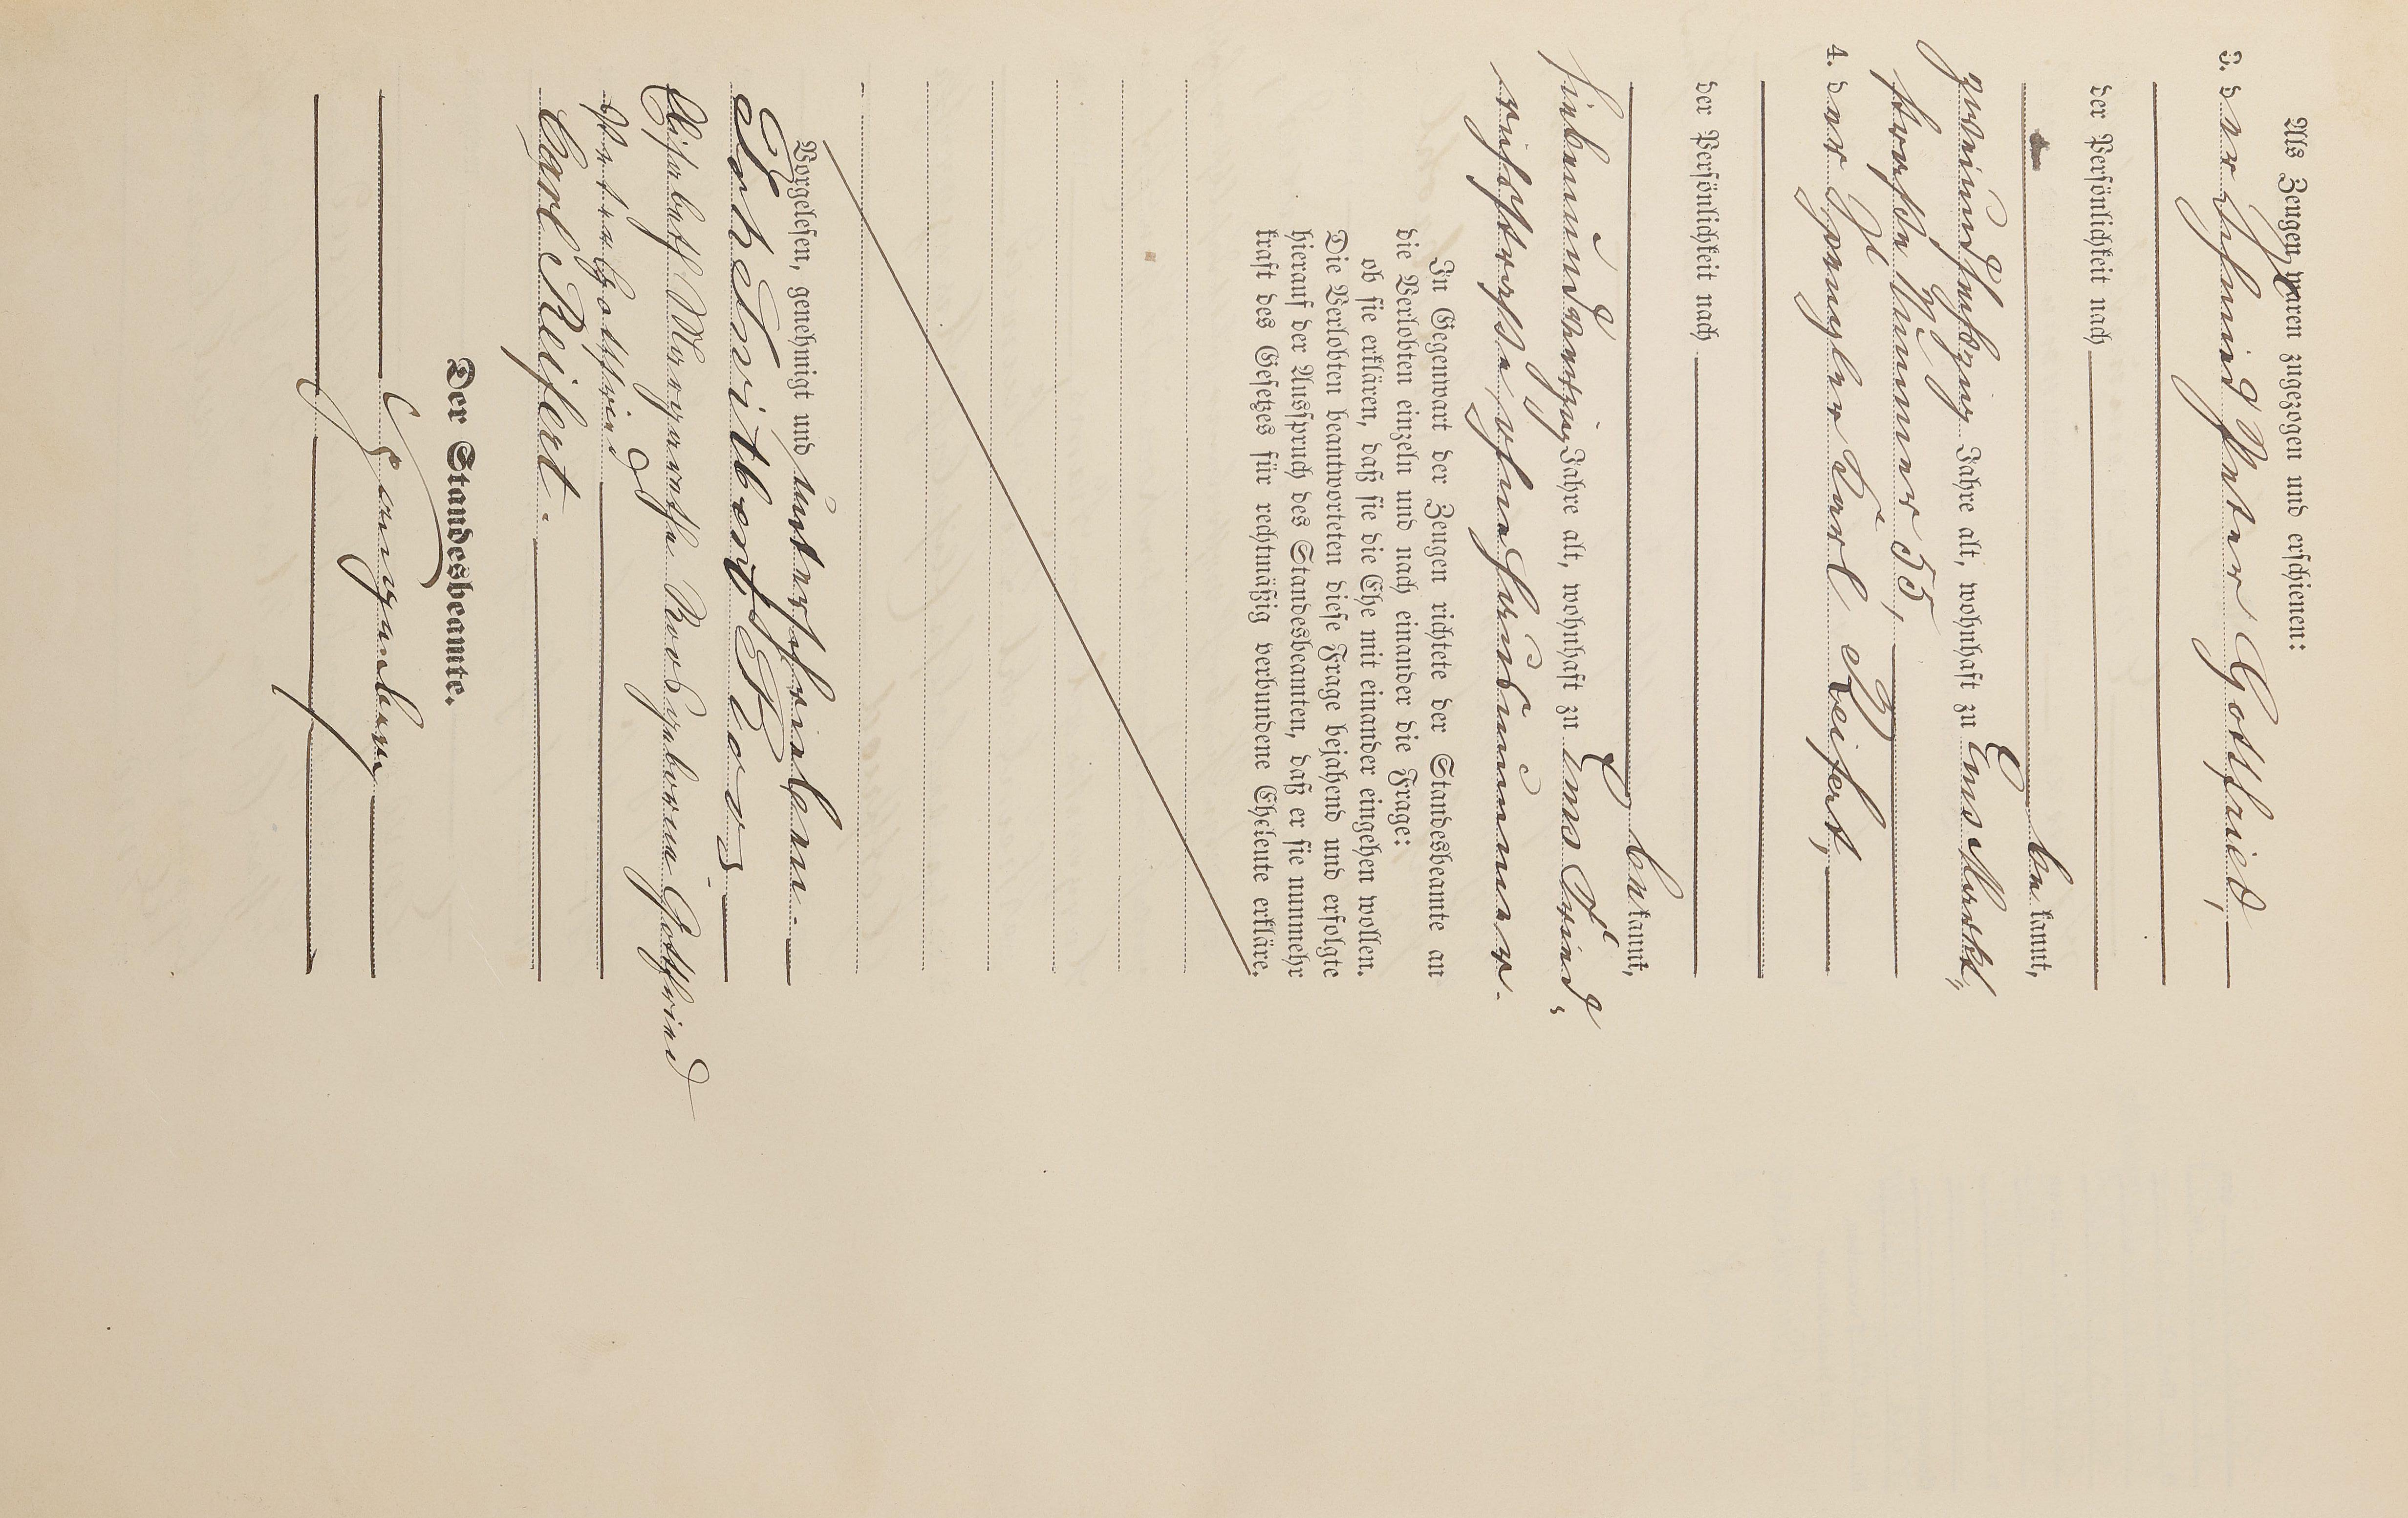 Als Zeugen waren zugezogen und erschienen:
3. der Schmied Peter Gottfried,
der Persönlichkeit nach
be kannt,
zweiundfünfzig Jahre alt, wohnhaft zu Ems Markt,
straße Nummer 55,
4. der Spengler Karl Reifert,
der Persönlichkeit nach
be kannt,
Jahre alt, wohnhaft zu Ems Fried,
richstraße, ohne Hausnummer.
In Gegenwart der Zeugen richtete der Standesbeamte an
die Verlobten einzeln und nach einander die Frage:
ob sie erklären, daß sie die Ehe mit einander eingehen wollen.
Die Verlobten beantworteten diese Frage bejahend und erfolgte
hierauf der Ausspruch des Standesbeamten, daß er sie nunmehr
kraft des Gesetzes für rechtmäßig verbundene Eheleute erkläre.
Vorgelesen, genehmigt und unterschrieben.
Elisabeth Margarethe Roos geborene Gottfried
Peter Gottfried
Carl Reifert.
Der Standesbeamte.
Spangenberg